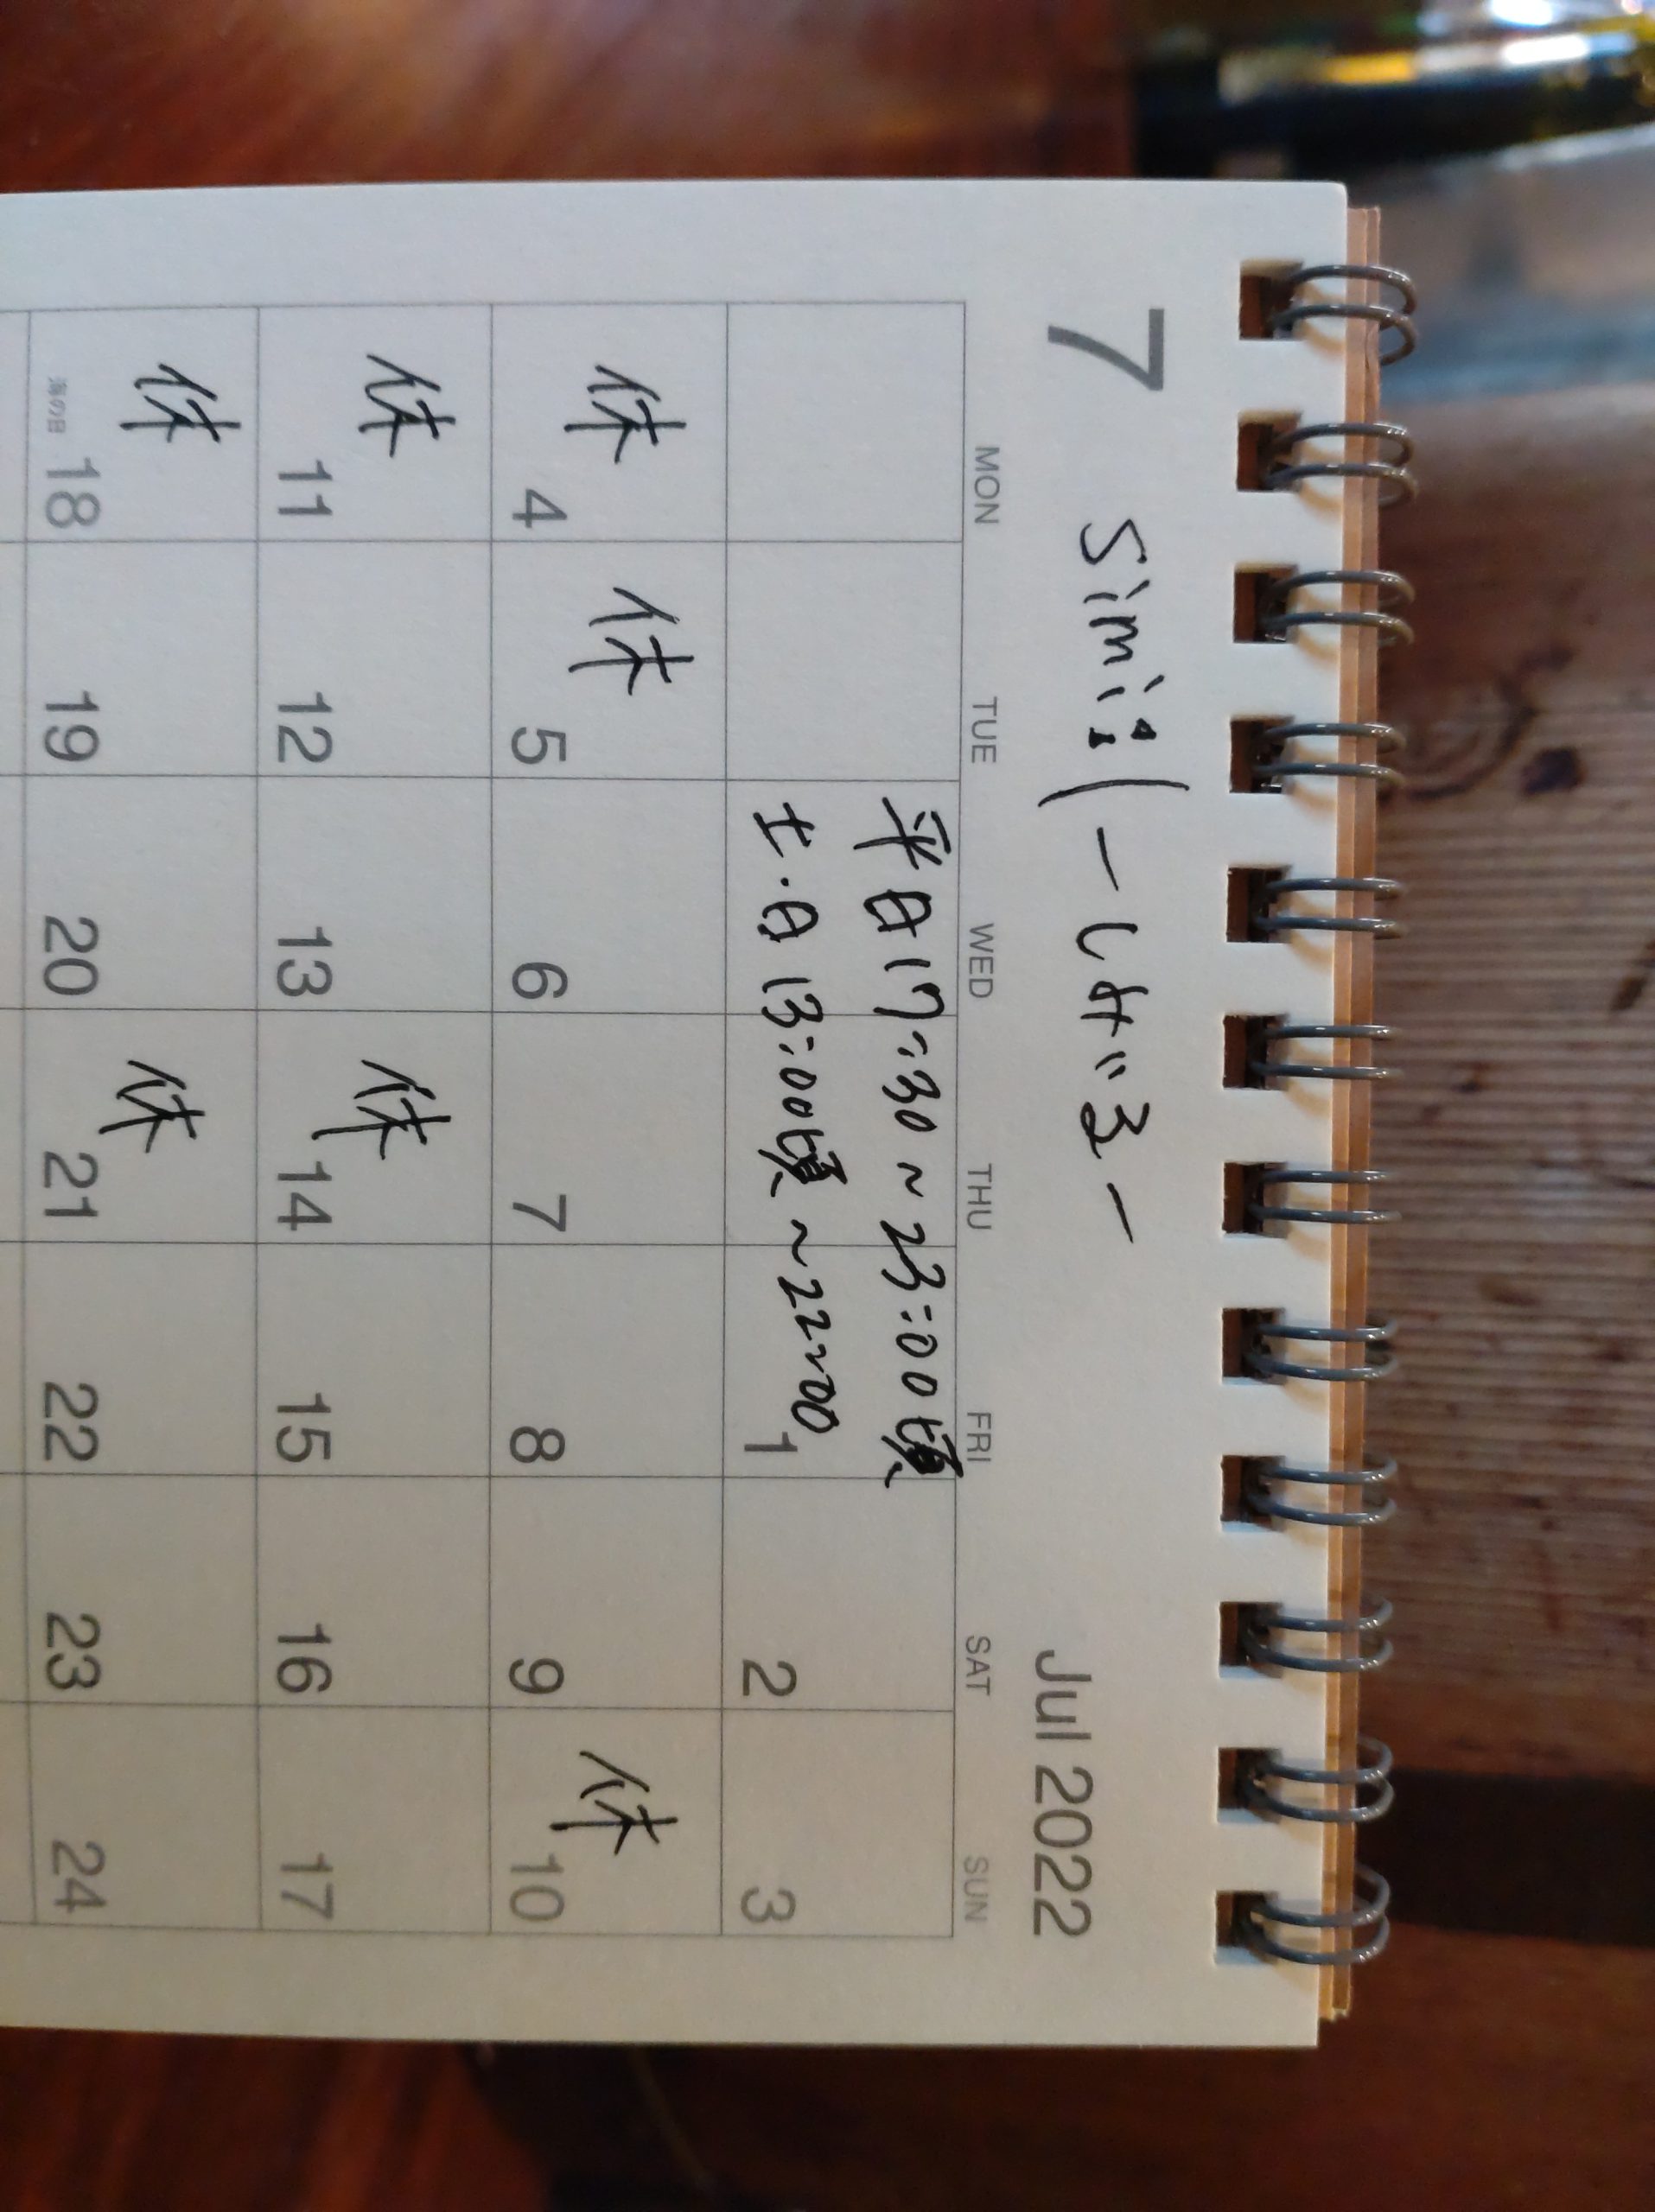 7 Simi:(ーしみるー Jul 2022
MON TUE WED THU FRI SAT SUN
平日17:30~23:00頃
土・日13:00頃~22:00
1 2 3
休 休 休
4 5 6 7 8 9 10
休 休
11 12 13 14 15 16 17
休 休
海の日 18 19 20 21 22 23 24